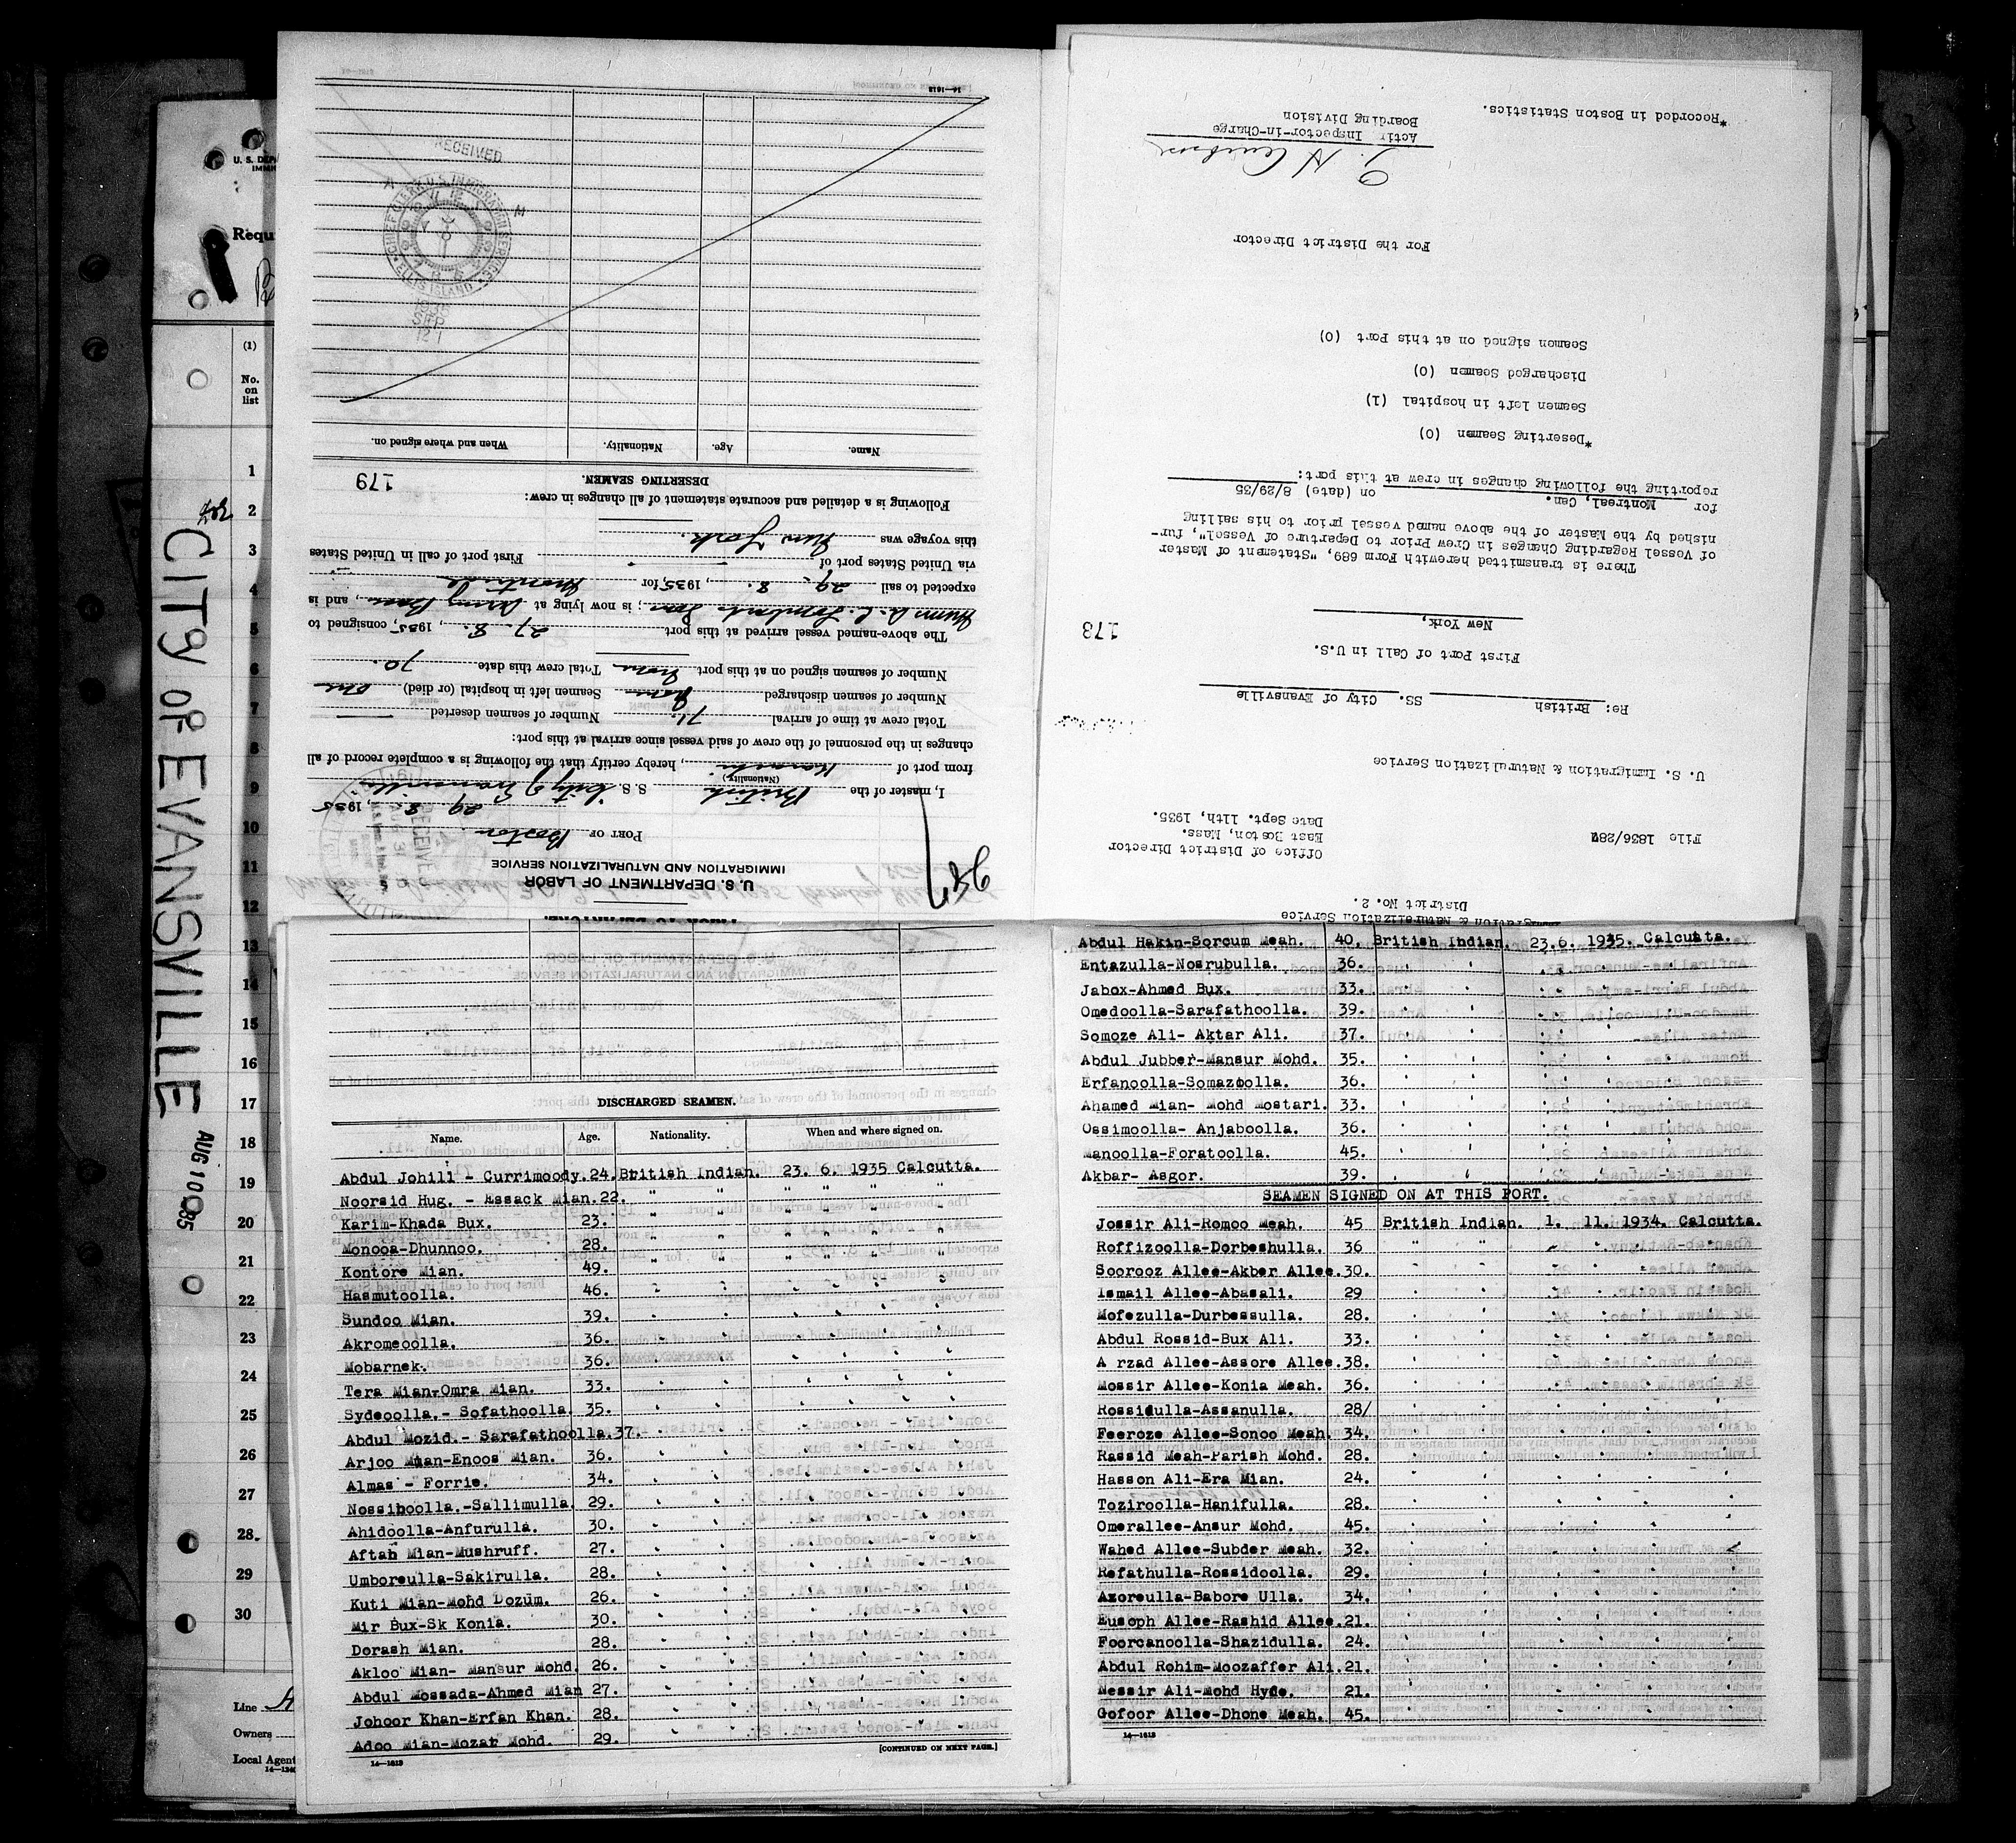 U. S. DEPA
IMMI
Requ
(1)
No.
on
list
1
2
3
4
5
6
7
8
9
10
11
12
13
14
15
16
17
18
19
20
21
22
23
24
25
26
27
28
29
30
Line
Owners
Local Agent
14—1240
CITY OF EVANSVILLE
AUG 10 1935
U. S. DEPARTMENT OF LABOR
IMMIGRATION AND NATURALIZATION SERVICE
PORT OF Boston
29 8, 1935
I, master of the British S. S. City of Evansville,
(Nationality)
from port of Karachi, hereby certify that the following is a complete record of all
changes in the personnel of the crew of said vessel since arrival at this port:
Total crew at time of arrival 71. Number of seamen deserted
Number of seamen discharged None Seamen left in hospital (or died) one
Number of seamen signed on at this port. None Total crew this date 70.
The above-named vessel arrived at this port 27. 8., 1935, consigned to
; is now lying at Army Base, and is
expected to sail 29. 8., 1935, for Montreal
via United States port of - First port of call in United States
this voyage was New York.
Following is a detailed and accurate statement of all changes in crew:
179
DESERTING SEAMEN.
Name. Age. Nationality. When and where signed on.
RECEIVED
CHIEF CLERK U.S. IMMIGRATION SERVICE
ELLIS ISLAND
14—1613
Immigration & Naturalization Service
District No. 2.
Office of District Director
East Boston, Mass.
Date Sept. 11th, 1935.
File 1836/287
U. S. Immigration & Naturalization Service
Re: British SS. City of Evansville
First Port of Call in U.S.
New York,
178
There is transmitted herewith Form 689, "Statement of Master
of Vessel Regarding Changes in Crew Prior to Departure of Vessel", fur-
nished by the Master of the above named vessel prior to his sailing
for Montreal, Can. on (date) 8/29/35
reporting the following changes in crew at this port:
*Deserting Seamen (0)
Seamen left in hospital (1)
Discharged Seamen (0)
Seamen signed on at this Port (0)
For the District Director
Acti Inspector-in-Charge
Boarding Division
*Recorded in Boston Statistics.
DISCHARGED SEAMEN.
Name. Age. Nationality. When and where signed on.
Abdul Johili - Currimoody. 24. British Indian. 23. 6. 1935 Calcutta.
Noorsid Hug. - Essack Mian. 22. " " " " " "
Karim-Khada Bux. 23. " " " " " "
Monooa-Dhunnoo. 28. " " " " " "
Kontore Mian. 49. " " " " " "
Hasmutoolla. 46. " " " " " "
Sundoo Mian. 39. " " " " " "
Akromeoolla. 36. " " " " " "
Mobarnek. 36. " " " " " "
Tera Mian-Omra Mian. 33. " " " " " "
Sydeoolla.- Sofathoolla. 35. " " " " " "
Abdul Mozid.- Sarafathoolla. 37. " " " " " "
Arjoo Mian-Enoos Mian. 36. " " " " " "
Almas - Forrie. 34. " " " " " "
Nossiboolla.-Sallimulla. 29. " " " " " "
Ahidoolla-Anfurulla. 30. " " " " " "
Aftab Mian-Mushruff. 27. " " " " " "
Umboreulla-Sakirulla. 28. " " " " " "
Kuti Mian-Mohd Dozum. 26. " " " " " "
Mir Bux-Sk Konia. 30. " " " " " "
Dorash Mian. 28. " " " " " "
Akloo Mian- Mansur Mohd. 26. " " " " " "
Abdul Mossada-Ahmed Mian 27. " " " " " "
Johoor Khan-Erfan Khan. 28. " " " " " "
Adoo Mian-Mozat Mohd. 29. " " " " " "
14—1613
[CONTINUED ON NEXT PAGE.]
Abdul Hakin-Sorcum Meah. 40. British Indian. 23.6. 1935. Calcutta.
Entazulla-Nosrubulla. 36. " " " " " "
Jabox-Ahmed Bux. 33. " " " " " "
Omedoolla-Sarafathoolla. 39. " " " " " "
Somoze Ali- Aktar Ali. 37. " " " " " "
Abdul Jubber-Mansur Mohd. 35. " " " " " "
Erfanoolla-Somazoolla. 36. " " " " " "
Ahamed Mian- Mohd Mostari. 33. " " " " " "
Ossimoolla- Anjaboolla. 36. " " " " " "
Manoolla-Foratoolla. 45. " " " " " "
Akbar- Asgor. 39. " " " " " "
SEAMEN SIGNED ON AT THIS PORT.
Jossir Ali-Romoo Meah. 45 British Indian. 1. 11. 1934. Calcutta.
Roffizoolla-Dorbeshulla. 36 " " " " " "
Soorooz Allee-Akber Allee. 30. " " " " " "
Ismail Allee-Abasali. 29 " " " " " "
Mofezulla-Durbessulla. 28. " " " " " "
Abdul Rossid-Bux Ali. 33. " " " " " "
A rzad Allee-Assore Allee. 38. " " " " " "
Mossir Allee-Konia Meah. 36. " " " " " "
Rossidulla-Assanulla. 28/ " " " " " "
Feeroze Allee-Sonoo Meah. 34. " " " " " "
Rassid Meah-Parish Mohd. 28. " " " " " "
Hasson Ali-Era Mian. 24. " " " " " "
Toziroolla-Hanifulla. 28. " " " " " "
Omerallee-Ansur Mohd. 45. " " " " " "
Wahed Allee-Subder Meah. 32. " " " " " "
Refathulla-Rossidoolla. 29. " " " " " "
Azoreulla-Babore Ulla. 34. " " " " " "
Eusoph Allee-Rashid Allee. 21. " " " " " "
Foorcanoolla-Shazidulla. 24. " " " " " "
Abdul Rohim-Moozaffer Ali. 21. " " " " " "
Nessir Ali-Mohd Hyde. 21. " " " " " "
Gofoor Allee-Dhone Meah. 45. " " " " " "
14—1613